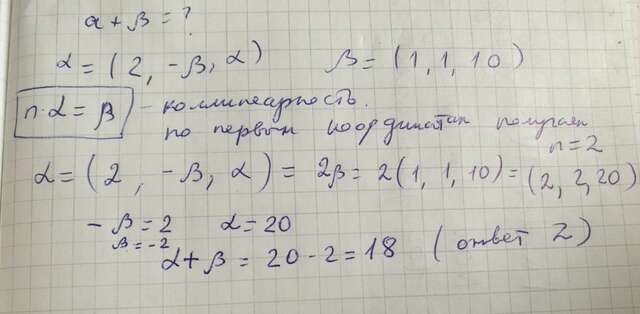 α + β = ?
α = (2, -β, α) β = (1, 1, 10)
n·α = β - коллинеарность.
по первым координатам получаем
n = 2
α = (2, -β, α) = 2β = 2(1, 1, 10) = (2, 2, 20)
-β = 2 α = 20
β = -2
α + β = 20 - 2 = 18 (ответ 2)